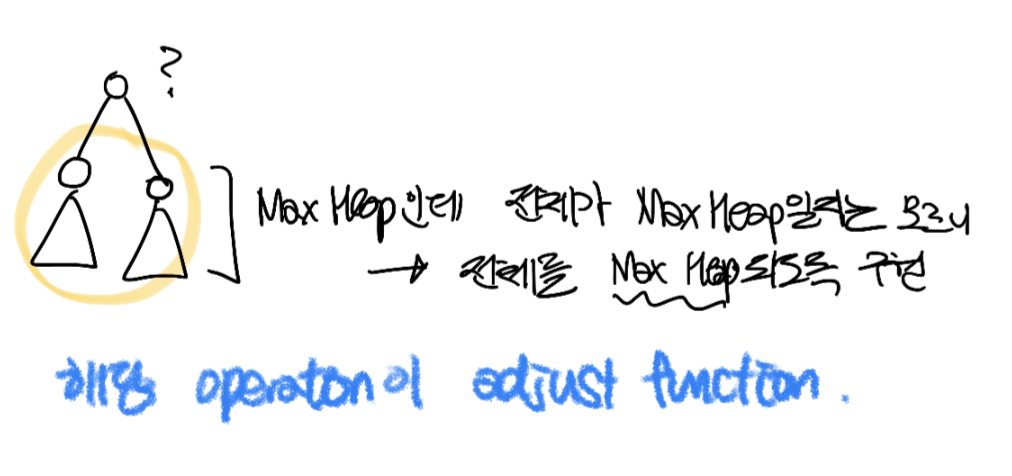 ?
Max Heap인데 전체가 Max Heap일지는 모르니
→ 전체를 Max Heap되도록 구현
해당 operation이 adjust function.